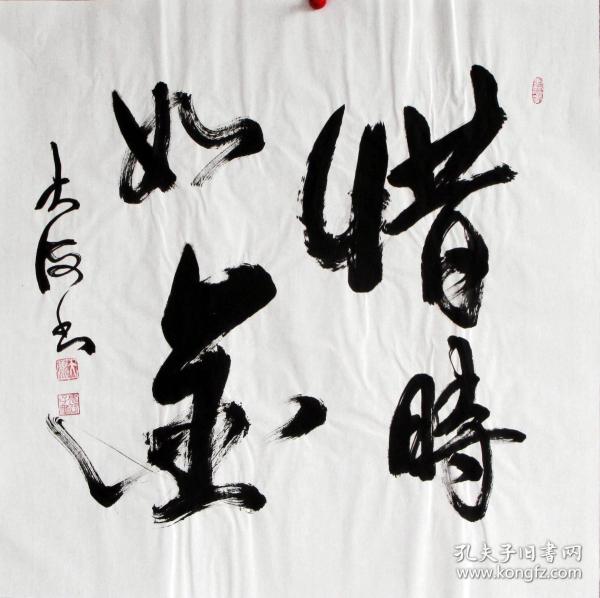 惜時
如金
大海书
孔夫子旧书网
www.kongfz.com